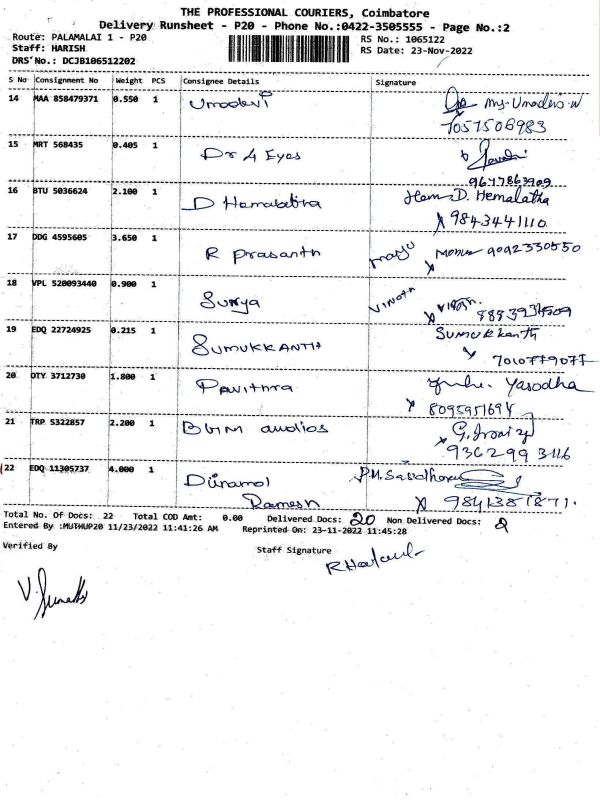 THE PROFESSIONAL COURIERS, Coimbatore
Delivery Runsheet - P20 - Phone No.:0422-3505555 - Page No.:2
Route: PALAMALAI 1 - P20 RS No.: 1065122
Staff: HARISH RS Date: 23-Nov-2022
DRS No.: DCJB106512202
S No Consignment No Weight PCS Consignee Details Signature
14 MAA 858479371 0.550 1 Umadevi Ms-Umadevi-N
7057506983
15 MRT 568435 0.405 1 Dr 4 Eyes
9677863909
16 BTU 5036624 2.100 1 D Hemalatha Hem D. Hemalatha
9843441110
17 DDG 4595605 3.650 1 R Prasanth 9092330550
18 VPL 520093440 0.900 1 Surya VINOTH
19 EDQ 22724925 0.215 1 SUMUKKANTH Sumukkanth
7010779077
20 OTY 3712730 1.800 1 Pavithra Yasodha
8095951694
21 TRP 5322857 2.200 1 BGM audios
9362993116
22 EDQ 11305737 4.000 1
Ramesh 9841387871
Total No. Of Docs: 22 Total COD Amt: 0.00 Delivered Docs: 20 Non Delivered Docs: 2
Entered By :MUTHUP20 11/23/2022 11:41:26 AM Reprinted On: 23-11-2022 11:45:28
Verified By Staff Signature